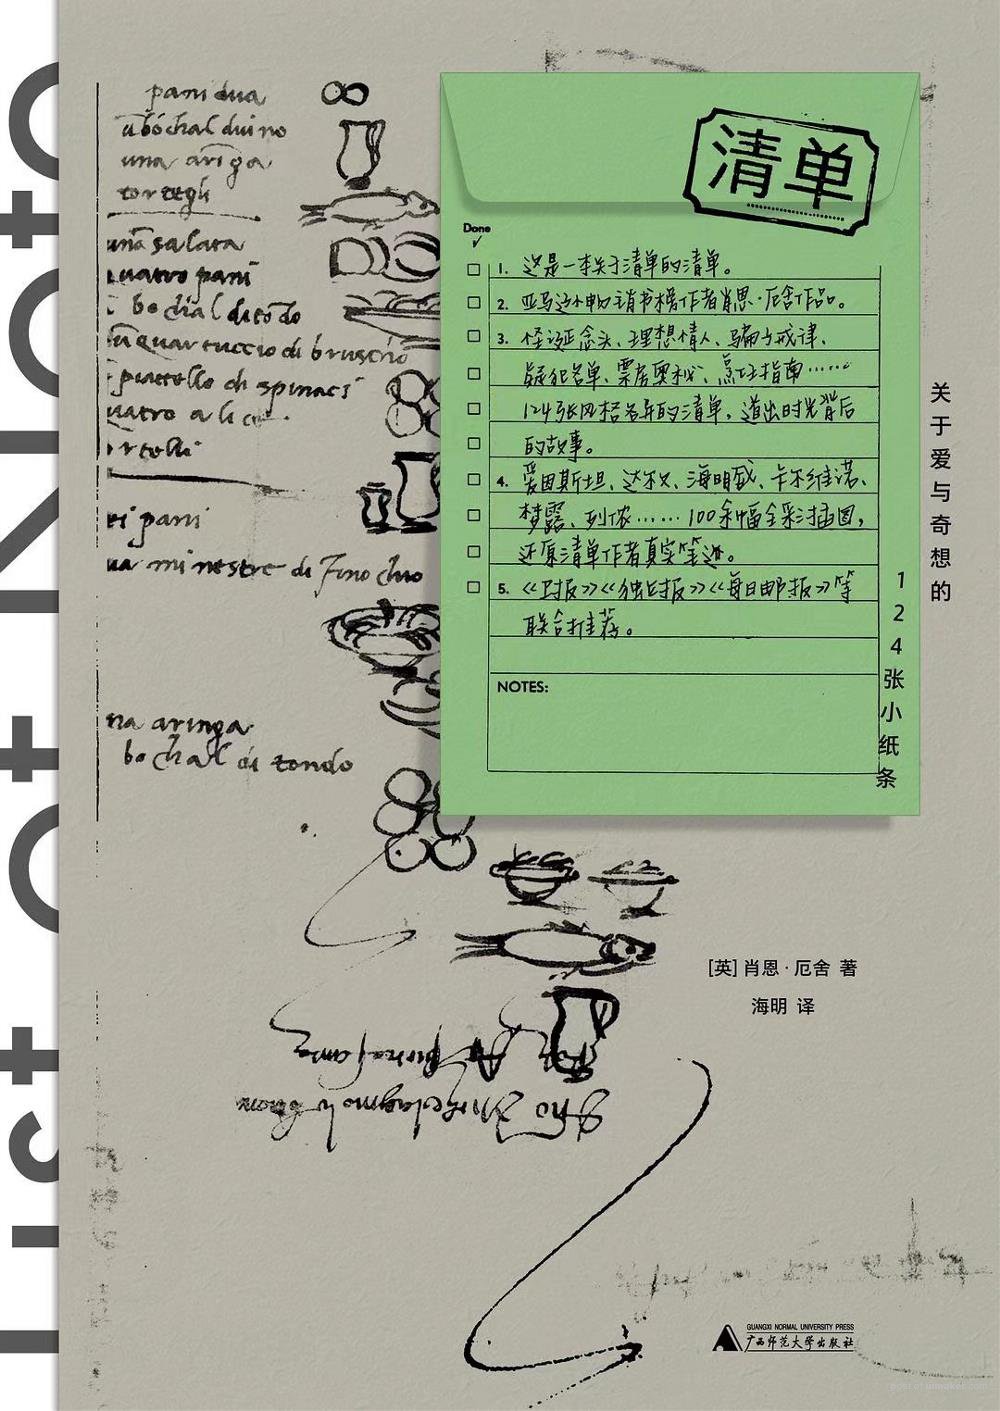 pani dua
u bochal di vino
una aringa
tortegli
una salata
quatro pani
bochal di tondo
un quartuccio di bruscho
piattello di spinaci
quatro alice
tortelli
sei pani
una minestre di finochio
una aringa
bochal di tondo
清单
Done
✓
1. 这是一本关于清单的清单。
2. 亚马逊畅销书榜作者肖恩·厄舍作品。
3. 怪诞念头、理想情人、骗与戒律、
疑犯名单、票房奥秘、烹饪指南……
124张风格各异的清单,道出时光背后
的故事。
4. 爱因斯坦、达·芬奇、海明威、卡尔维诺、
梦露、列侬……100余幅全彩插图,
还原清单作者真实笔迹。
5. 《卫报》《独立报》《每日邮报》等
联合推荐。
NOTES:
关于爱与奇想的
124张小纸条
[英] 肖恩·厄舍 著
海明 译
GUANGXI NORMAL UNIVERSITY PRESS
广西师范大学出版社